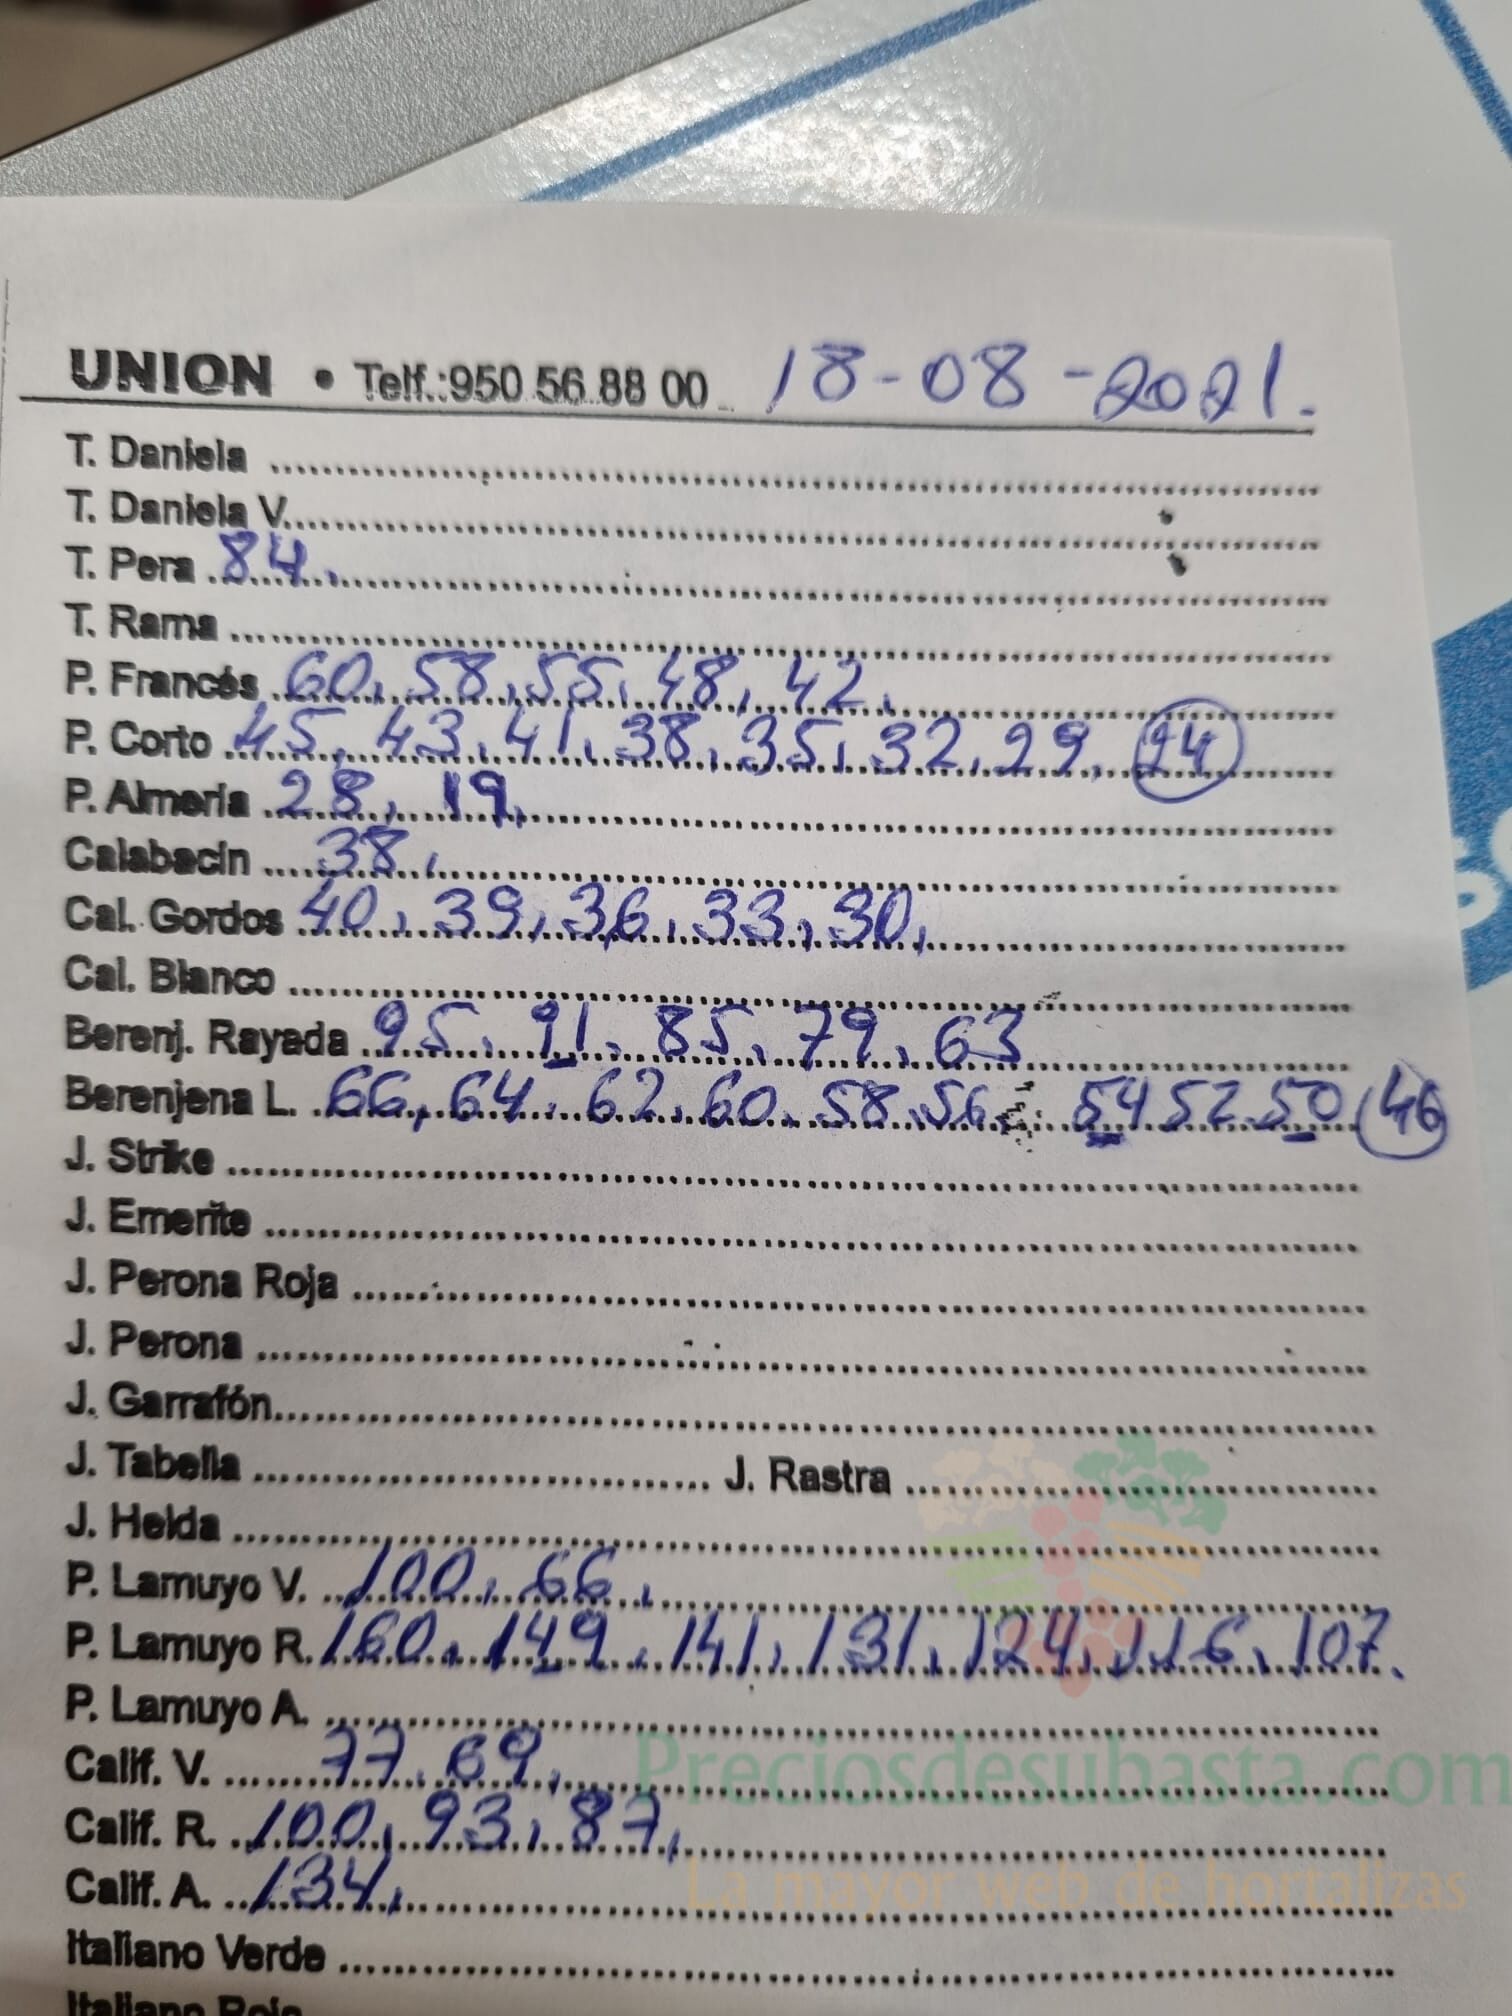 UNION • Telf.:950 56 88 00 18-08-2021.
T. Daniela ........................
T. Daniela V. ........................
T. Pera 84.
T. Rama ........................
P. Francés 60, 58, 55, 48, 42.
P. Corto 45, 43, 41, 38, 35, 32, 29, 24
P. Almería 28, 19,
Calabacín 38,
Cal. Gordos 40, 39, 36, 33, 30,
Cal. Blanco ........................
Berenj. Rayada 95, 91, 85, 79, 63
Berenjena L. 66, 64, 62, 60, 58, 56, 54 52 50 46
J. Strike ........................
J. Emerite ........................
J. Perona Roja ........................
J. Perona ........................
J. Garrafón ........................
J. Tabella ........................ J. Rastra ........................
J. Helda ........................
P. Lamuyo V. 100, 66,
P. Lamuyo R. 160, 149, 141, 131, 124, 116, 107.
P. Lamuyo A. ........................
Calif. V. 77, 69,
Preciosdesubasta.com
Calif. R. 100, 93, 87,
Calif. A. 134,
La mayor web de hortalizas
Italiano Verde ........................
Italiano Rojo